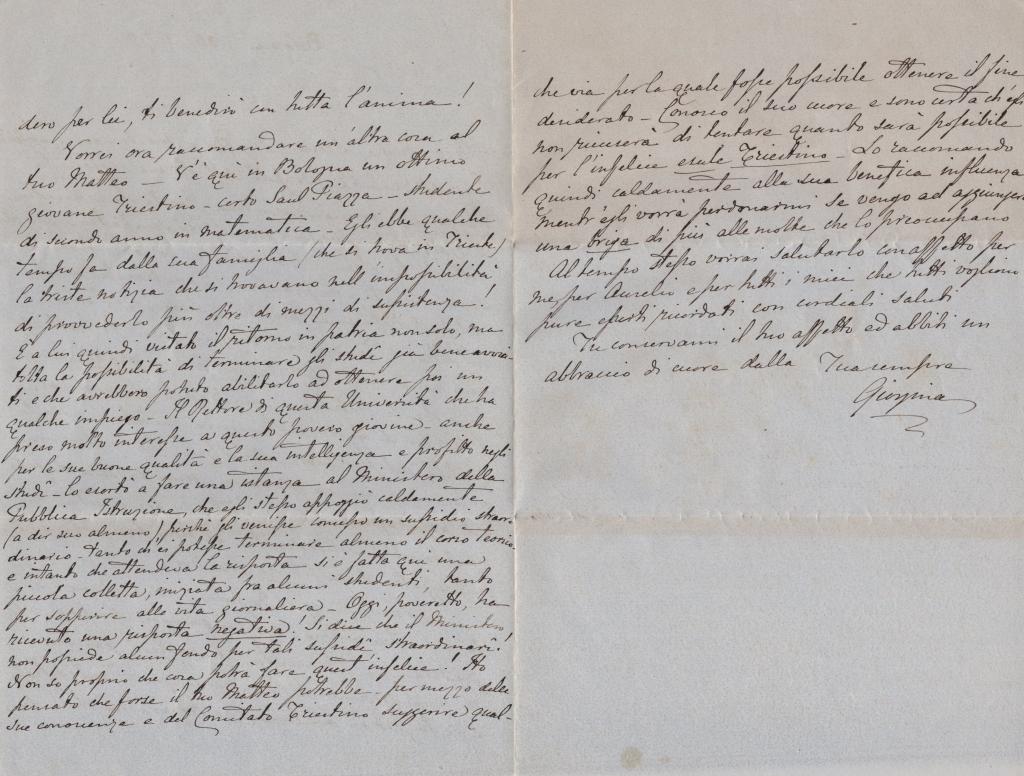 dero per lei, ti benedirò con tutta l'anima!
Vorrei ora raccomandare un'altra cosa al
tuo Matteo — V'è quì in Bologna un ottimo
giovane Triestino - certo Saul Piazza - studente
di secondo anno in matematica - Egli ebbe qualche
tempo fa dalla sua famiglia (che si trova in Trieste)
la triste notizia che si trovavano nell'impossibilità
di provvederlo più oltre di mezzi di sussistenza!
E a lui quindi vietato il ritorno in patria non solo, ma
tolta la possibilità di terminare gli studî già bene avvia-
ti e che avrebbero potuto abilitarlo ad ottenere poi un
qualche impiego - Il Rettore di questa Università che ha
preso molto interesse a questo povero giovine - anche
per le sue buone qualità e la sua intelligenza e profitto negli
studî - lo esortò a fare una istanza al Ministero della
Pubblica Istruzione, che egli stesso appoggiò caldamente
(a dir suo almeno) perchè gli venisse concesso un sussidio straor-
dinario - tanto ch'ei potesse terminare almeno il corso teorico
e intanto che attendeva la risposta si è fatta qui una
piccola colletta, iniziata fra alcuni studenti, tanto
per sopperire alla vita giornaliera - Oggi, poveretto, ha
ricevuto una risposta negativa! Si dice che il Ministero
non possiede alcun fondo per tali sussidî straordinarî!
Non so proprio che cosa potrà fare quest'infelice! Ho
pensato che forse il tuo Matteo potrebbe - per mezzo delle
sue conoscenze e del Comitato Triestino suggerire qual-
che via per la quale fosse possibile ottenere il fine
desiderato - Conosco il suo cuore e sono certa ch'egli
non ricuserà di tentare quanto sarà possibile
per l'infelice esule Triestino - Lo raccomando
quindi caldamente alla sua benefica influenza
mentr'egli vorrà perdonarmi se vengo ad aggiungere
una briga di più alle molte che lo preoccupano
Al tempo stesso vorrai salutarlo con affetto per
me, per Aurelio e per tutti i miei che tutti vogliono
pure esserti ricordati con cordiali saluti
Tu conservami il tuo affetto ed abbiti un
abbraccio di cuore dalla Tua sempre
Giorgina